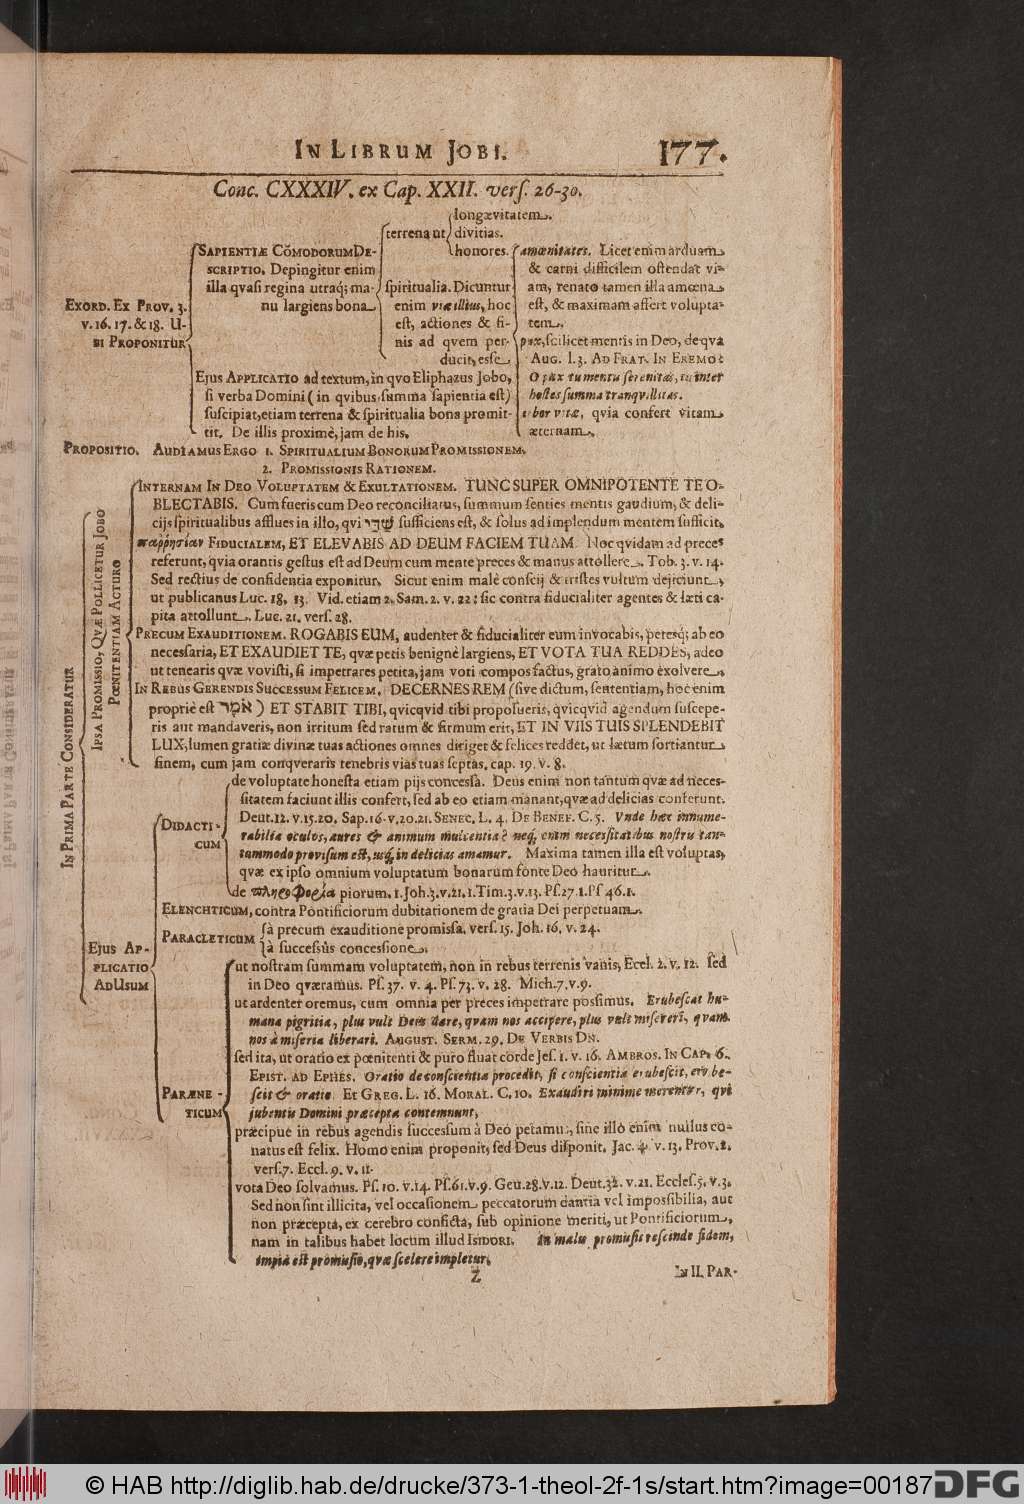 IN LIBRUM JOBI. 177.
Conc. CXXXIV. ex Cap. XXII. vers. 26-30.
EXORD. EX PROV. 3.
v. 16. 17. & 18. U-
BI PROPONITUR
SAPIENTIÆ CÕMODORUM DE-
SCRIPTIO. Depingitur enim
illa qvasi regina utraq; ma-
nu largiens bona
terrena ut
longævitatem.
divitias.
honores.
spiritualia. Dicuntur
enim viæ illius, hoc
est, actiones & fi-
nis ad qvem per-
ducit, esse
amœnitates. Licet enim arduam
& carni difficilem ostendat vi-
am, renato tamen illa amœna
est, & maximam affert volupta-
tem.
pax, scilicet mentis in Deo, de qva
AUG. l. 3. AD FRAT. IN EREMO:
O pax tu mentis serenitas, tu inter
hostes summa tranqvillitas.
arbor vitæ, qvia confert vitam
æternam.
EJUS APPLICATIO ad textum, in qvo Eliphazus Jobo,
si verba Domini (in qvibus summa sapientia est)
suscipiat, etiam terrena & spiritualia bona promit-
tit. De illis proximè, jam de his.
PROPOSITIO. AUDIAMUS ERGO 1. SPIRITUALIUM BONORUM PROMISSIONEM.
2. PROMISSIONIS RATIONEM.
IN PRIMA PARTE CONSIDERATUR
IPSA PROMISSIO, QVÆ POLLICETUR JOBO
PŒNITENTIAM ACTURO
INTERNAM IN DEO VOLUPTATEM & EXULTATIONEM. TUNC SUPER OMNIPOTENTE TE O-
BLECTABIS. Cum fueris cum Deo reconciliatus, summum senties mentis gaudium, & deli-
cijs spiritualibus afflues in illo, qvi שדי sufficiens est, & solus ad implendum mentem sufficit,
παῤῥησίαν FIDUCIALEM, ET ELEVABIS AD DEUM FACIEM TUAM. Hoc qvidam ad preces
referunt, qvia orantis gestus est ad Deum cum mente preces & manus attollere. Tob. 3. v. 14.
Sed rectius de confidentia exponitur. Sicut enim malè conscij & tristes vultum dejiciunt,
ut publicanus Luc. 18, 13. Vid. etiam 2. Sam. 2. v. 22: sic contra fiducialiter agentes & læti ca-
pita attollunt. Luc. 21. vers. 28.
PRECUM EXAUDITIONEM. ROGABIS EUM, audenter & fiducialiter eum invocabis, petesq; ab eo
necessaria, ET EXAUDIET TE, qvæ petis benignè largiens, ET VOTA TUA REDDES, adeo
ut tenearis qvæ vovisti, si impetrares petita, jam voti compos factus, grato animo exolvere.
IN REBUS GERENDIS SUCCESSUM FELICEM. DECERNES REM (sive dictum, sententiam, hoc enim
propriè est אמר) ET STABIT TIBI, qvicqvid tibi proposueris, qvicqvid agendum suscepe-
ris aut mandaveris, non irritum sed ratum & firmum erit, ET IN VIIS TUIS SPLENDEBIT
LUX, lumen gratiæ divinæ tuas actiones omnes diriget & felices reddet, ut lætum sortiantur
finem, cum jam conqveraris tenebris vias tuas septas. cap. 19. v. 8.
EJUS AP-
PLICATIO
AD USUM
DIDACTI-
CUM
de voluptate honesta etiam pijs concessa. Deus enim non tantum qvæ ad neces-
sitatem faciunt illis confert, sed ab eo etiam manant, qvæ ad delicias conferunt.
Deut. 12. v. 15. 20. Sap. 16. v. 20. 21. SENEC. L. 4. DE BENEF. C. 5. Unde hæc innume-
rabilia oculos, aures & animum mulcentia? neq; enim necessitatibus nostris tan-
tummodo provisum est, usq; in delicias amamur. Maxima tamen illa est voluptas,
qvæ ex ipso omnium voluptatum bonarum fonte Deo hauritur.
de πληροφορία piorum. 1. Joh. 3. v. 21. 1. Tim. 3. v. 13. Ps. 27. 1. Ps 46. 1.
ELENCHTICUM, contra Pontificiorum dubitationem de gratia Dei perpetuam.
PARACLETICUM
à precum exauditione promissa. vers. 15. Joh. 16. v. 24.
à successûs concessione.
PARÆNE-
TICUM
ut nostram summam voluptatem, non in rebus terrenis vanis, Eccl. 2. v. 12. sed
in Deo qværamus. Ps. 37. v. 4. Ps. 73. v. 28. Mich. 7. v. 9.
ut ardenter oremus, cum omnia per preces impetrare possimus. Erubescat hu-
mana pigritia, plus vult Deus dare, qvam nos accipere, plus vult misereri, qvam
nos à miseria liberari. AUGUST. SERM. 29. DE VERBIS DN.
sed ita, ut oratio ex pœnitenti & puro fluat corde Jes. 1. v. 16. AMBROS. IN CAP. 6.
EPIST. AD EPHES. Oratio de conscientia procedit, si conscientia erubescit, eru be-
scit & oratio. Et GREG. L. 16. MORAL. C. 10. Exaudiri minime merentur, qvi
jubentis Domini præcepta contemnunt,
præcipue in rebus agendis successum à Deo petamus, sine illo enim nullus co-
natus est felix. Homo enim proponit, sed Deus disponit. Jac. 4. v. 13. Prov. 2.
vers. 7. Eccl. 9. v. 11.
vota Deo solvamus. Ps. 10. v. 14. Ps. 61. v. 9. Gen. 28. v. 12. Deut. 32. v. 21. Eccles. 5. v. 3.
Sed non sint illicita, vel occasionem peccatorum dantia vel impossibilia, aut
non præcepta, ex cerebro conficta, sub opinione meriti, ut Pontificiorum,
nam in talibus habet locum illud ISIDORI. In malis promissis rescinde fidem,
impia est promissio, qvæ scelere impletur.
Z
IN II. PAR-
© HAB http://diglib.hab.de/drucke/373-1-theol-2f-1s/start.htm?image=00187
DFG